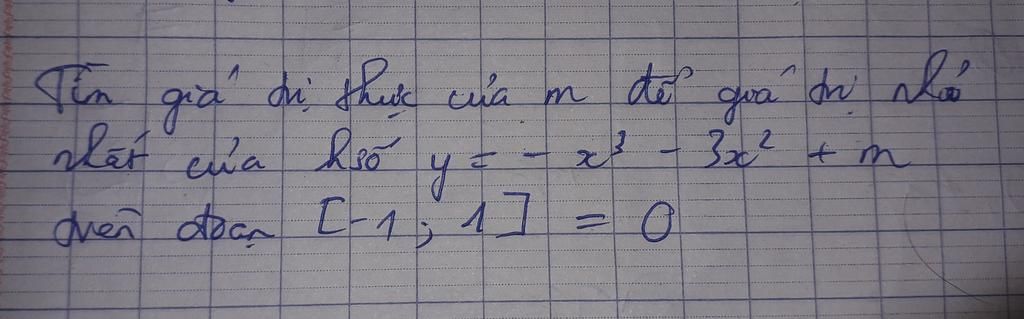 Tìn giá trị thực của m để giá trị nhỏ
nhất của hsố y = - x³ - 3x² + m
trên đoạn [-1; 1] = 0